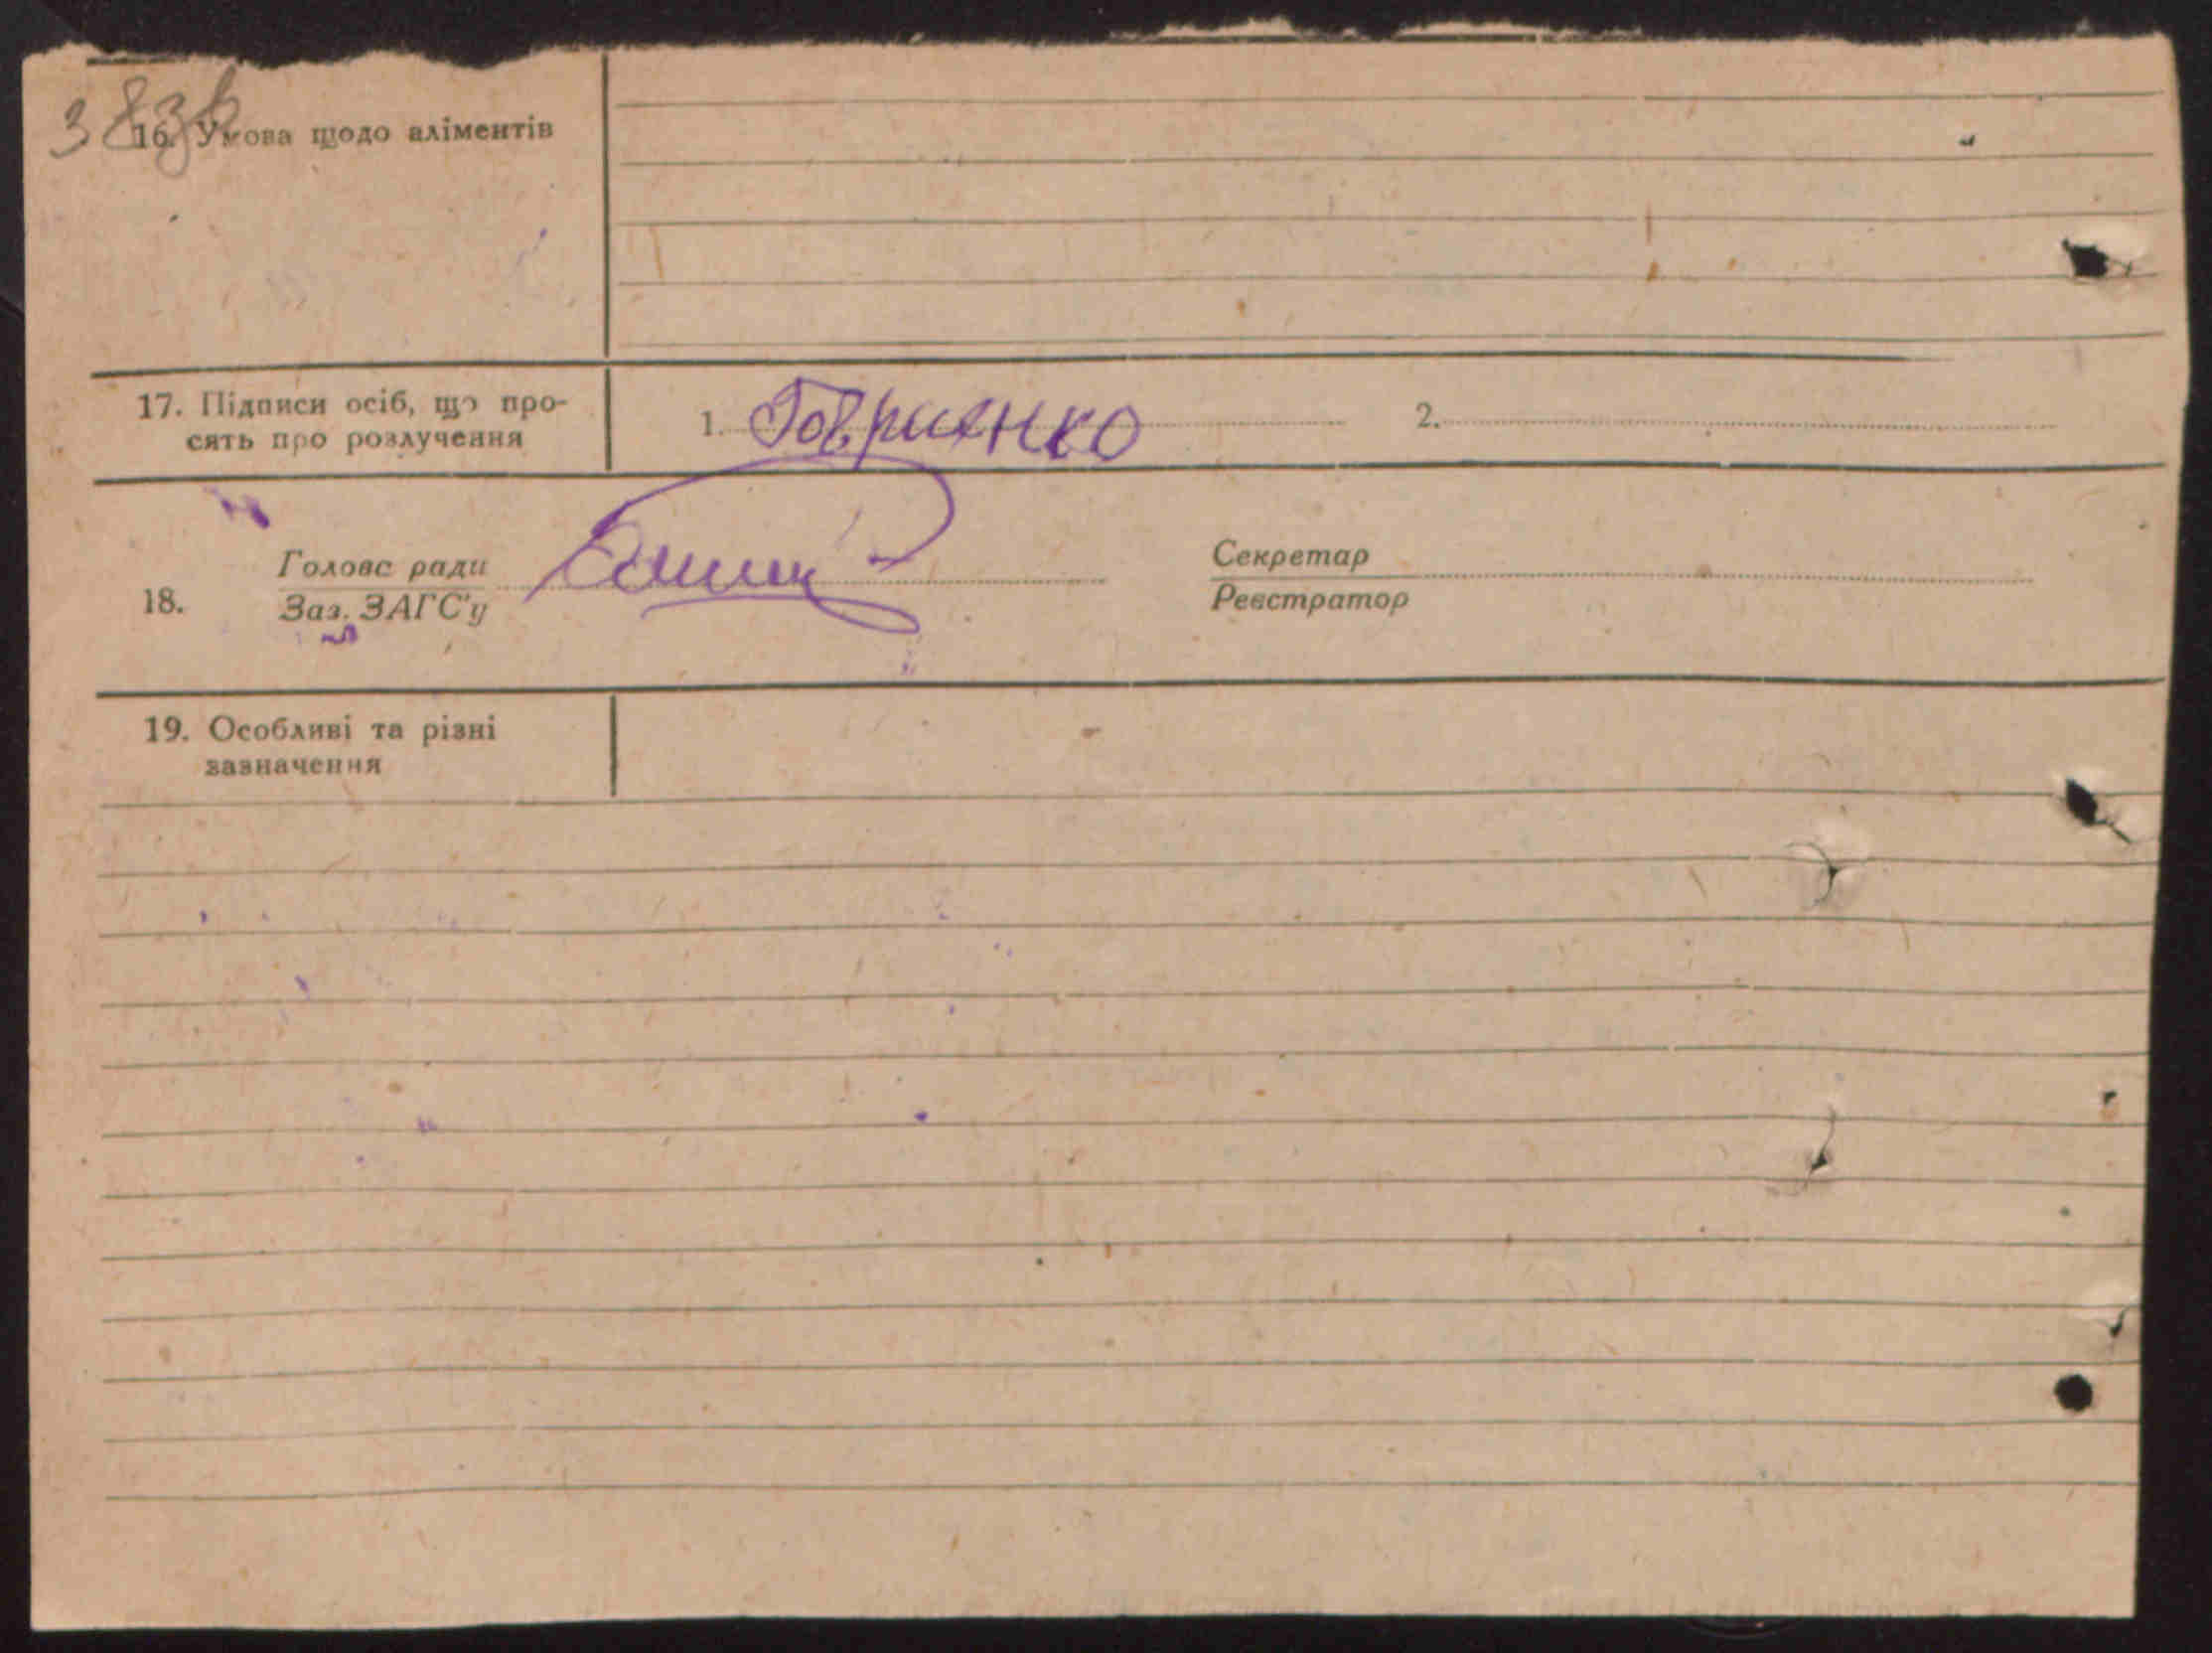 383в
16. Умова щодо аліментів
17. Підписи осіб, що про-
сять про розлучення
1. Говриенко 2.
18. Голова ради
Зав. ЗАГС'у
Секретар
Реєстратор
19. Особливі та різні
зазначення